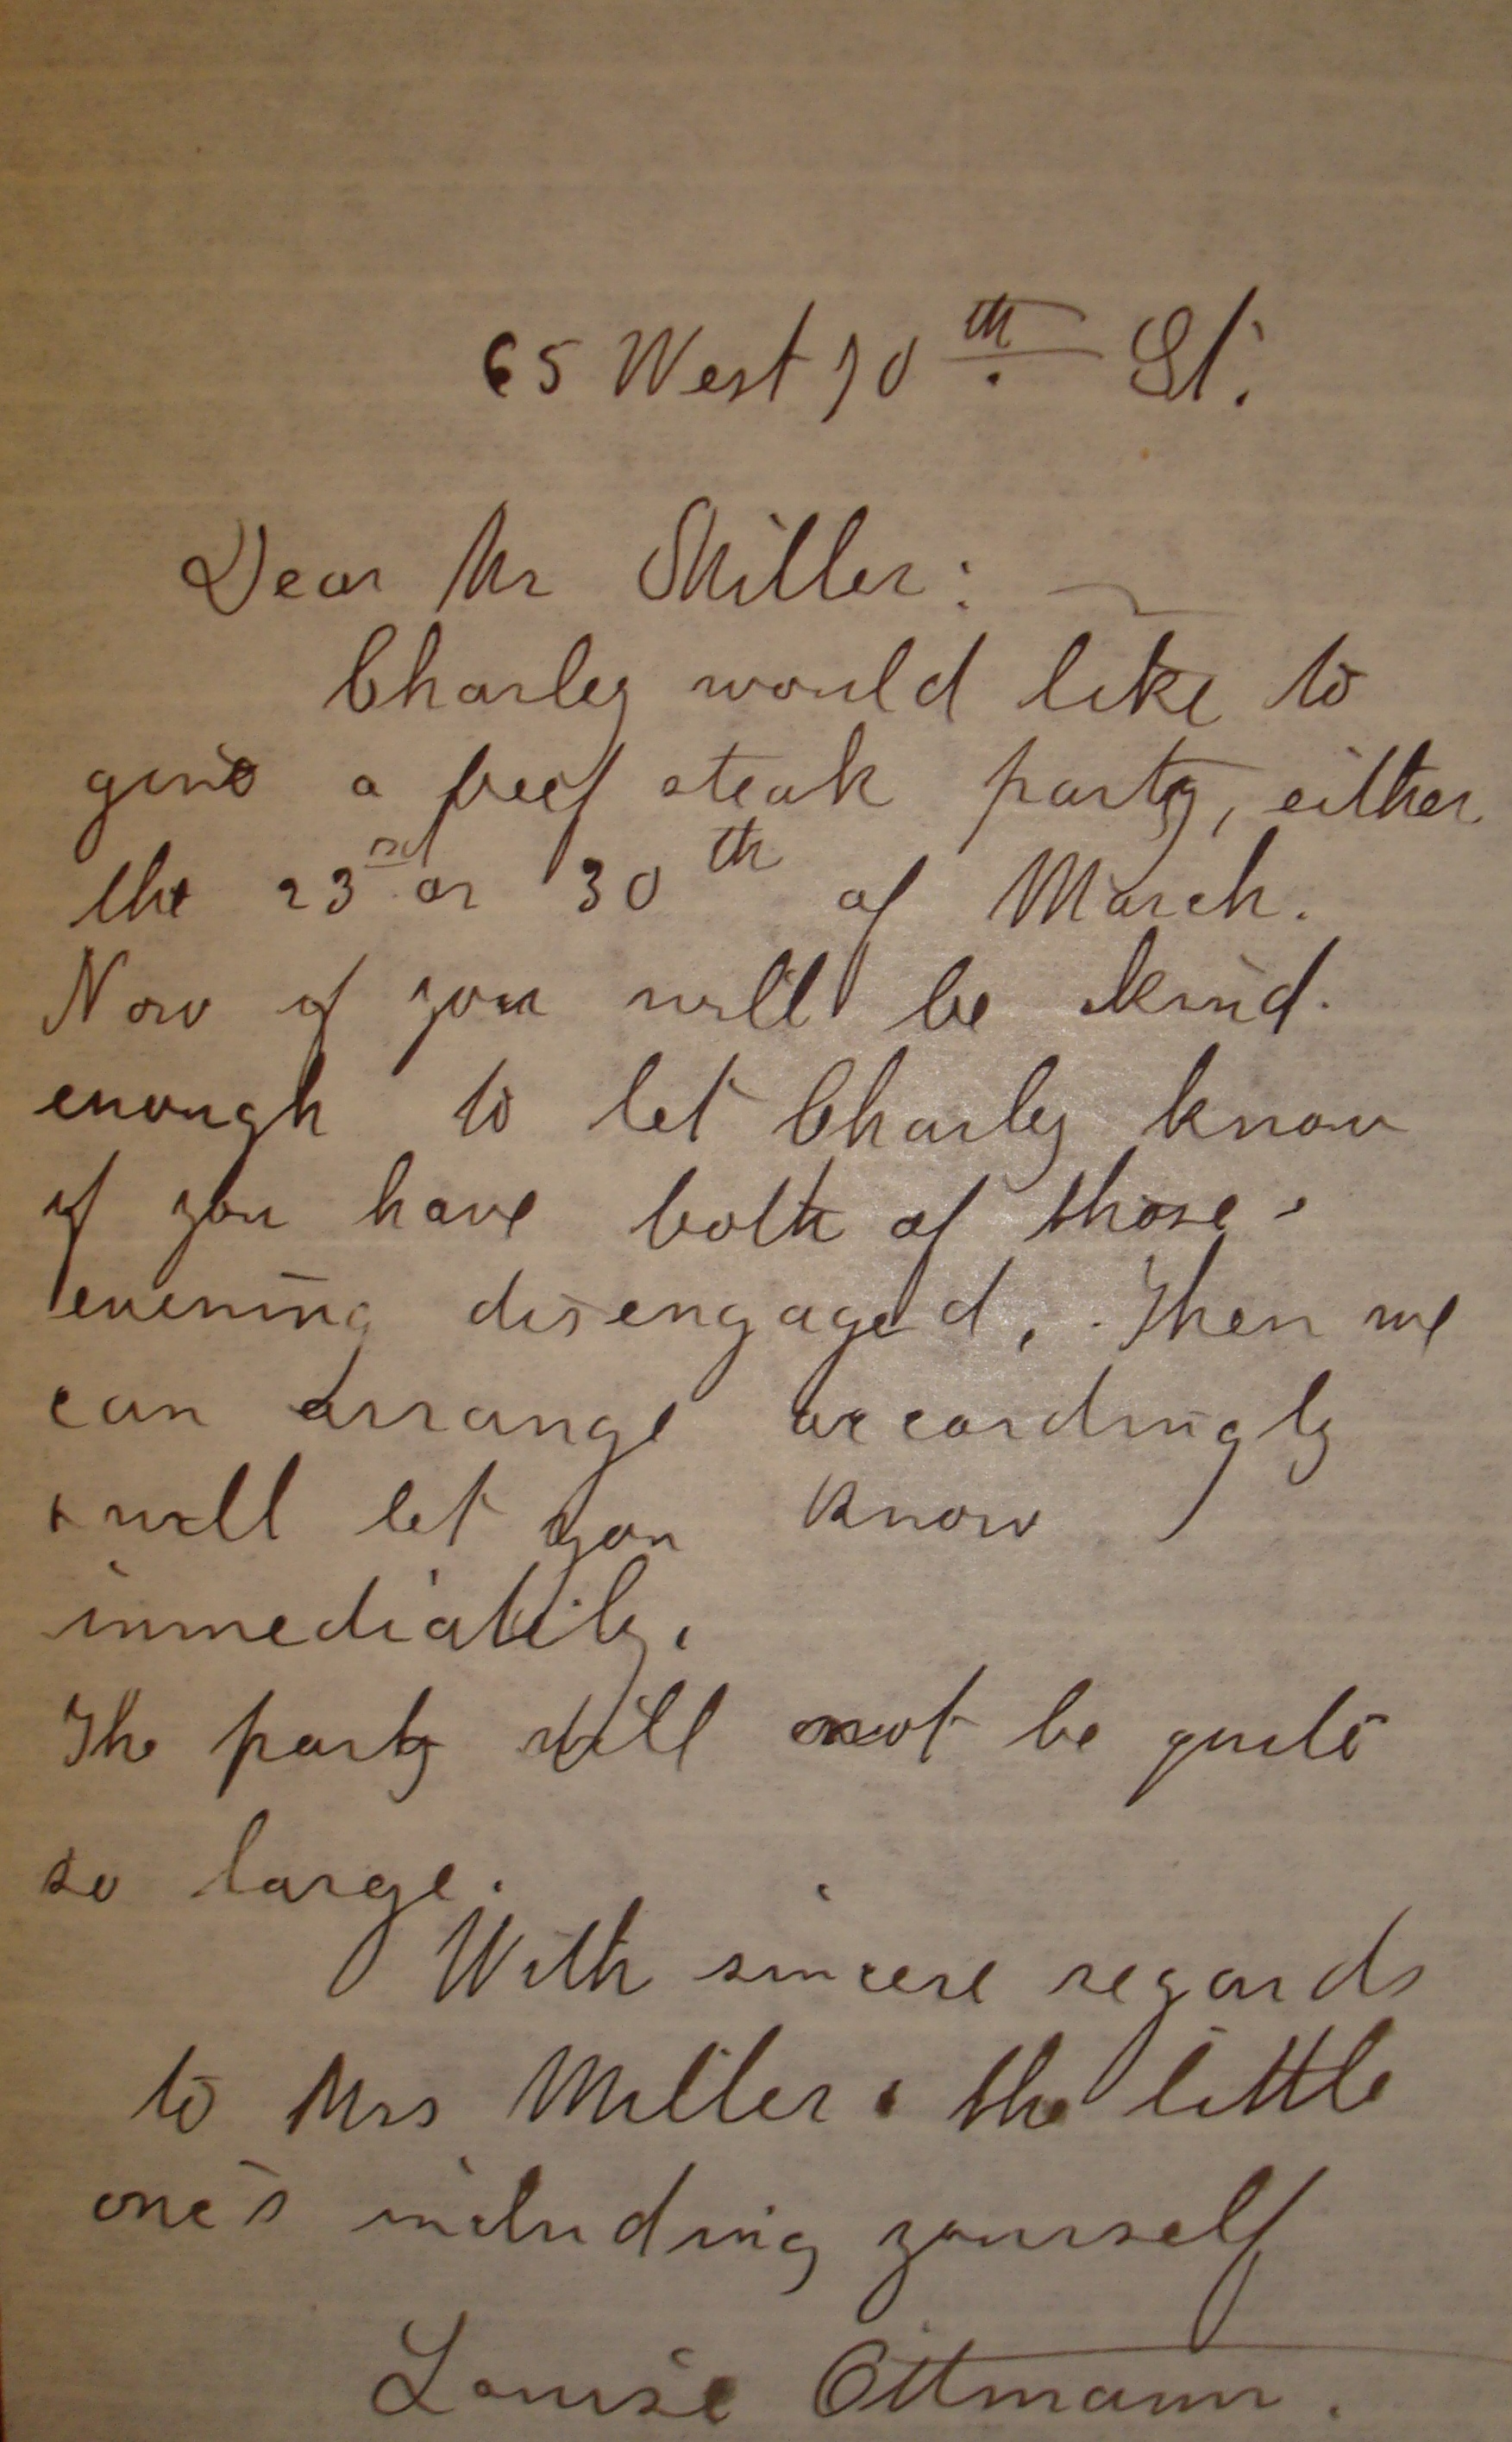 65 West 70th St.
Dear Mr Miller:
Charley would like to
give a beef steak party, either
the 23rd or 30th of March.
Now if you will be kind
enough to let Charley know
if you have both of those
evening disengaged. Then we
can arrange accordingly
+ will let you know
immediately.
The party will not be quite
so large.
With sincere regards
to Mrs Miller & the little
one's including yourself
Louise Ottmann.